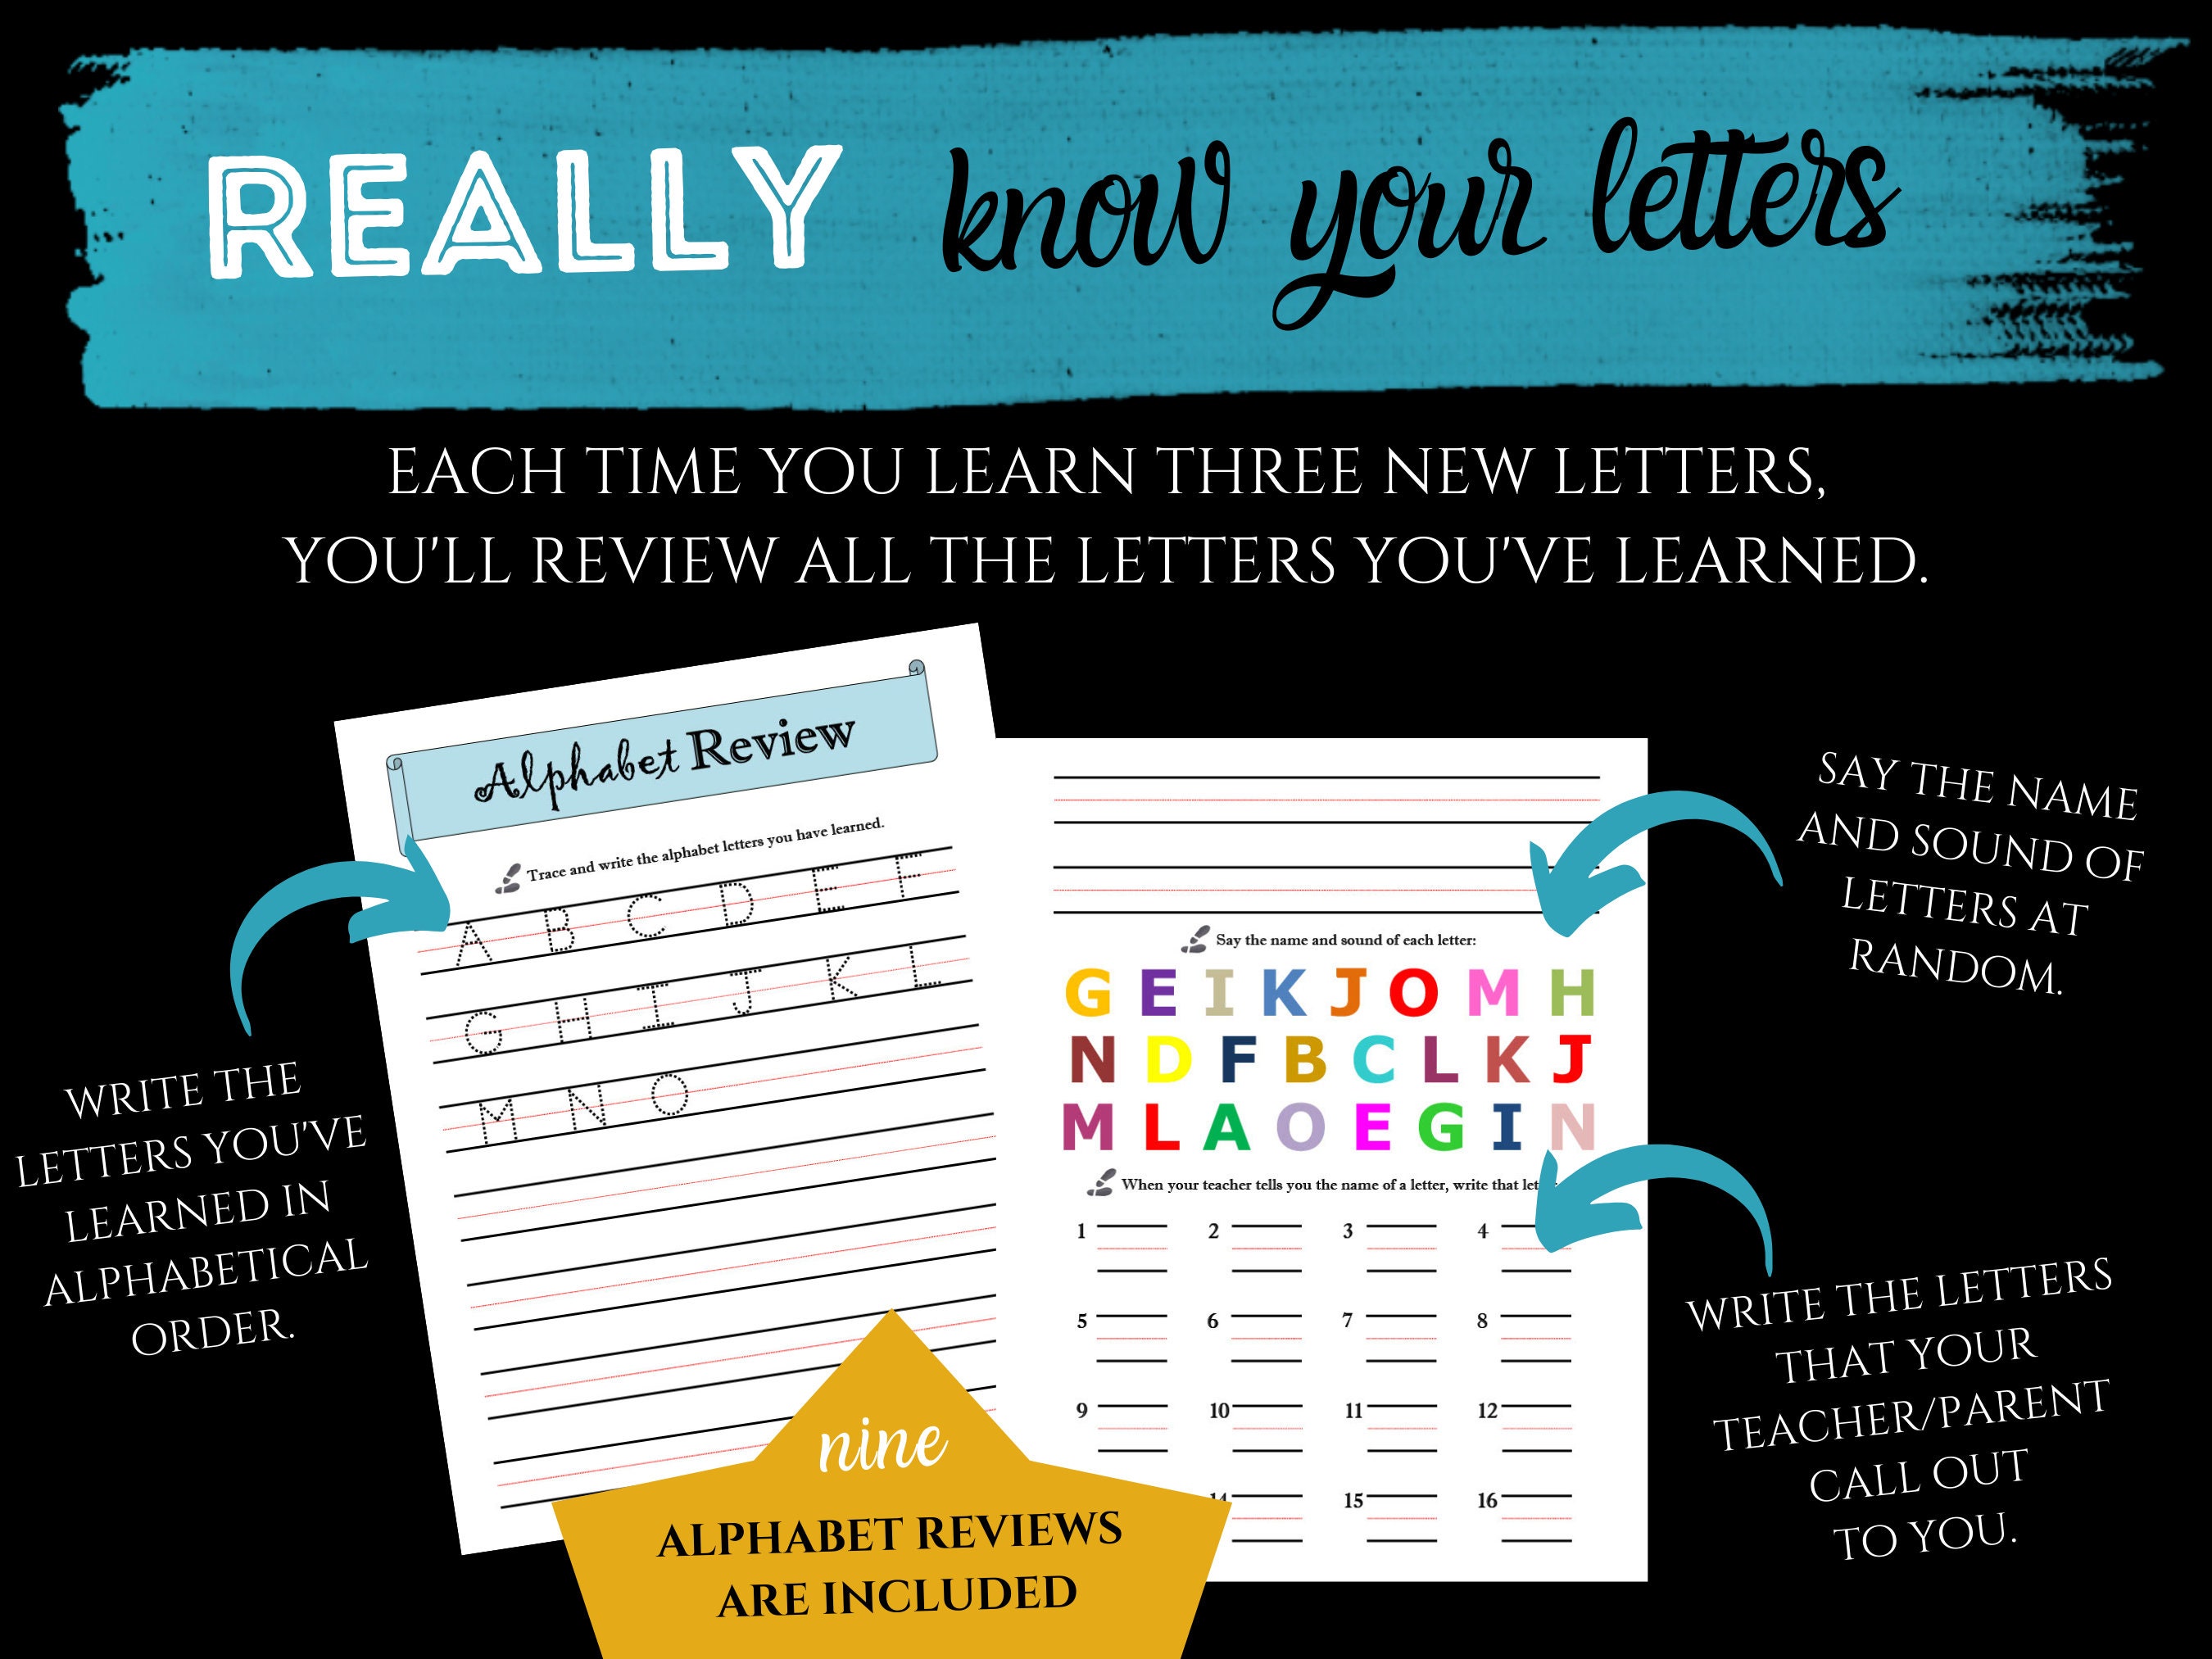 REALLY know your letters
EACH TIME YOU LEARN THREE NEW LETTERS,
YOU'LL REVIEW ALL THE LETTERS YOU'VE LEARNED.
Alphabet Review
Trace and write the alphabet letters you have learned.
A B C D E F
G H I J K L
M N O
WRITE THE
LETTERS YOU'VE
LEARNED IN
ALPHABETICAL
ORDER.
Say the name and sound of each letter:
G E I K J O M H
N D F B C L K J
M L A O E G I N
When your teacher tells you the name of a letter, write that
1 2 3 4
5 6 7 8
9 10 11 12
14 15 16
SAY THE NAME
AND SOUND OF
LETTERS AT
RANDOM.
WRITE THE LETTERS
THAT YOUR
TEACHER/PARENT
CALL OUT
TO YOU.
nine
ALPHABET REVIEWS
ARE INCLUDED